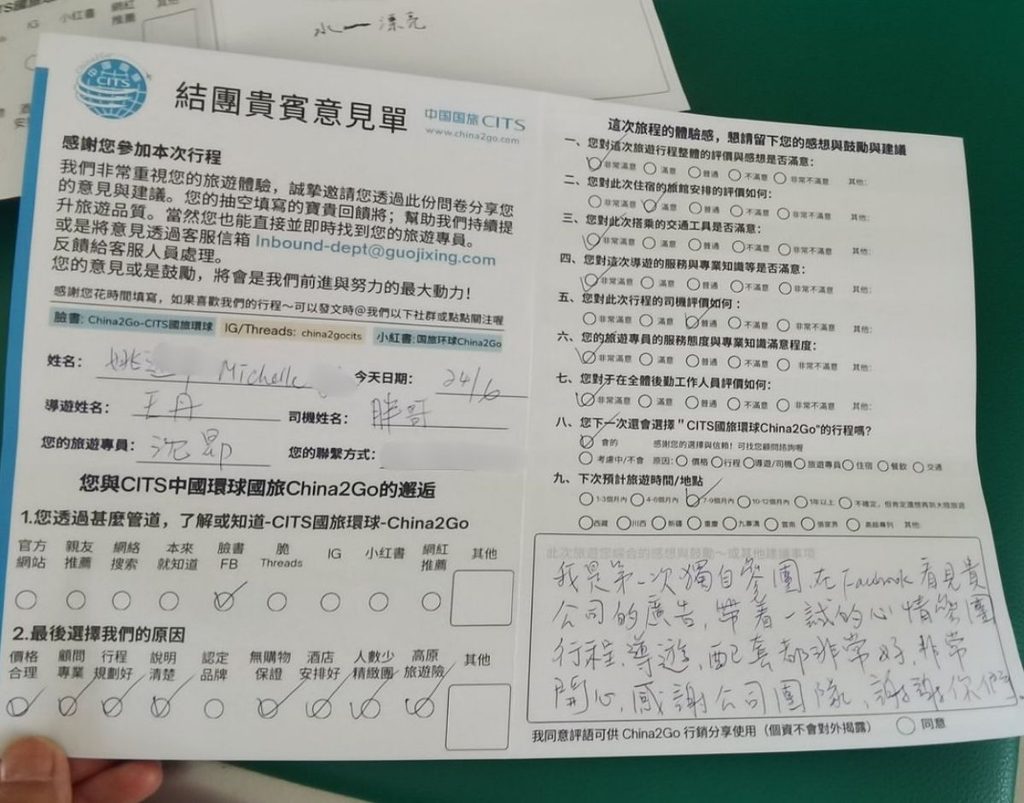 水一漂亮
IG
小紅書
網紅
推薦
CITS
結團貴賓意見單
中国国旅CITS
www.china2go.com
感謝您參加本次行程
我們非常重視您的旅遊體驗，誠摯邀請您透過此份問卷分享您
的意見與建議。您的抽空填寫的寶貴回饋將；幫助我們持續提
升旅遊品質。當然您也能直接並即時找到您的旅遊專員。
或是將意見透過客服信箱 Inbound-dept@guojixing.com
反饋給客服人員處理。
您的意見或是鼓勵，將會是我們前進與努力的最大動力！
感謝您花時間填寫，如果喜歡我們的行程～可以發文時@我們以下社群或點點關注喔
臉書: China2Go-CITS國旅環球 IG/Threads: china2gocits 小紅書:国旅环球China2Go
姓名： 姚 Michelle 今天日期： 24/6
導遊姓名： 王丹 司機姓名： 胖哥
您的旅遊專員： 沈昂 您的聯繫方式：
您與CITS中國環球國旅China2Go的邂逅
1.您透過甚麼管道，了解或知道-CITS國旅環球-China2Go
官方 親友 網絡 本來 臉書 脆 IG 小紅書 網紅 其他
網站 推薦 搜索 就知道 FB Threads 推薦
2.最後選擇我們的原因
價格 顧問 行程 說明 認定 無購物 酒店 人數少 高原 其他
合理 專業 規劃好 清楚 品牌 保證 安排好 精緻團 旅遊險
這次旅程的體驗感，懇請留下您的感想與鼓勵與建議
一、您對這次旅遊行程整體的評價與感想是否滿意：
非常滿意 滿意 普通 不滿意 非常不滿意 其他:
二、您對此次住宿的旅館安排的評價如何：
非常滿意 滿意 普通 不滿意 非常不滿意 其他:
三、您對此次搭乘的交通工具是否滿意：
非常滿意 滿意 普通 不滿意 非常不滿意 其他:
四、您對這次導遊的服務與專業知識等是否滿意：
非常滿意 滿意 普通 不滿意 非常不滿意 其他:
五、您對此次行程的司機評價如何：
非常滿意 滿意 普通 不滿意 非常不滿意 其他:
六、您的旅遊專員的服務態度與專業知識滿意程度：
非常滿意 滿意 普通 不滿意 非常不滿意 其他:
七、您對于在全體後勤工作人員評價如何：
非常滿意 滿意 普通 不滿意 非常不滿意 其他:
八、您下一次還會選擇"CITS國旅環球China2Go"的行程嗎？
會的 感謝您的選擇與信賴！可找您顧問諮詢喔
考慮中/不會 原因： 價格 行程 導遊/司機 旅遊專員 住宿 餐飲 交通
九、下次預計旅遊時間/地點
1-3個月內 4-6個月內 7-9個月內 10-12個月內 1年以上 不確定，但肯定還想再到大陸旅遊
西藏 川西 新疆 重慶 九寨溝 雲南 張家界 高鐵專列 其他:
此次旅遊您綜合的感想與鼓勵～或其他建議事項
我是第一次獨自參團，在Facebook看見貴
公司的廣告，帶着一試的心情參團
行程，導遊，配套都非常好，非常
開心，感謝公司團隊，謝謝你們。
我同意評語可供 China2Go 行銷分享使用（個資不會對外揭露） 同意